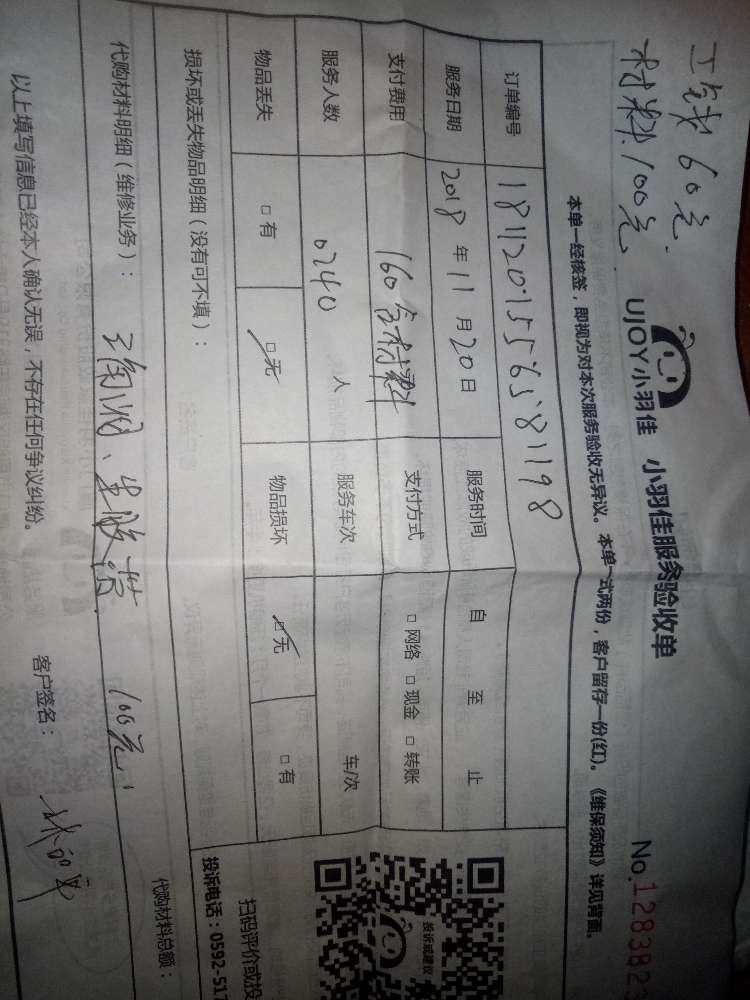 工钱60元
材料100元
UJOY小羽佳 小羽佳服务验收单
No.128382
本单一经核签，即视为对本次服务验收无异议。本单一式两份，客户留存一份(红)。《维保须知》详见背面。
订单编号 181120155658198
服务日期 2018年11月20日 服务时间 自 至 止
支付费用 160含材料 支付方式 □网络 □现金 □转账
服务人数 0240 人 服务车次 车/次
物品丢失 □有 □无 物品损坏 □无 □有
损坏或丢失物品明细（没有可不填）：
扫码评价或投
投诉或建议
投诉电话：0592-517
代购材料明细（维修业务）： 100元
代购材料总额：
以上填写信息已经本人确认无误，不存在任何争议纠纷。 客户签名：